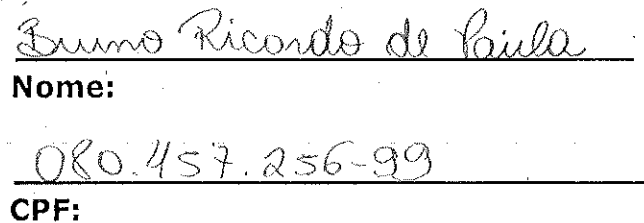 Bruno Ricardo de Paula
Nome:
080.457.256-99
CPF: